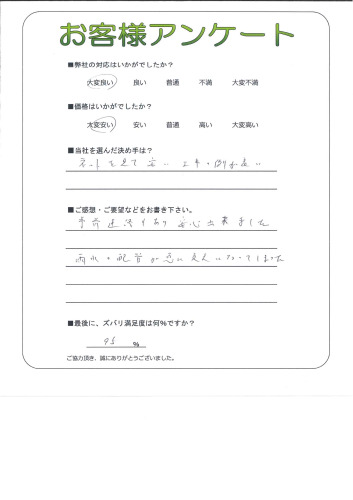 お客様アンケート
■弊社の対応はいかがでしたか?
大変良い 良い 普通 不満 大変不満
■価格はいかがでしたか?
大変安い 安い 普通 高い 大変高い
■当社を選んだ決め手は?
ネットを見て 安い 工事 が良い
■ご感想・ご要望などをお書き下さい。
事前連絡もあり 安心出来ました
雨水の配管が しまった
■最後に、ズバリ満足度は何%ですか?
95 %
ご協力頂き、誠にありがとうございました。